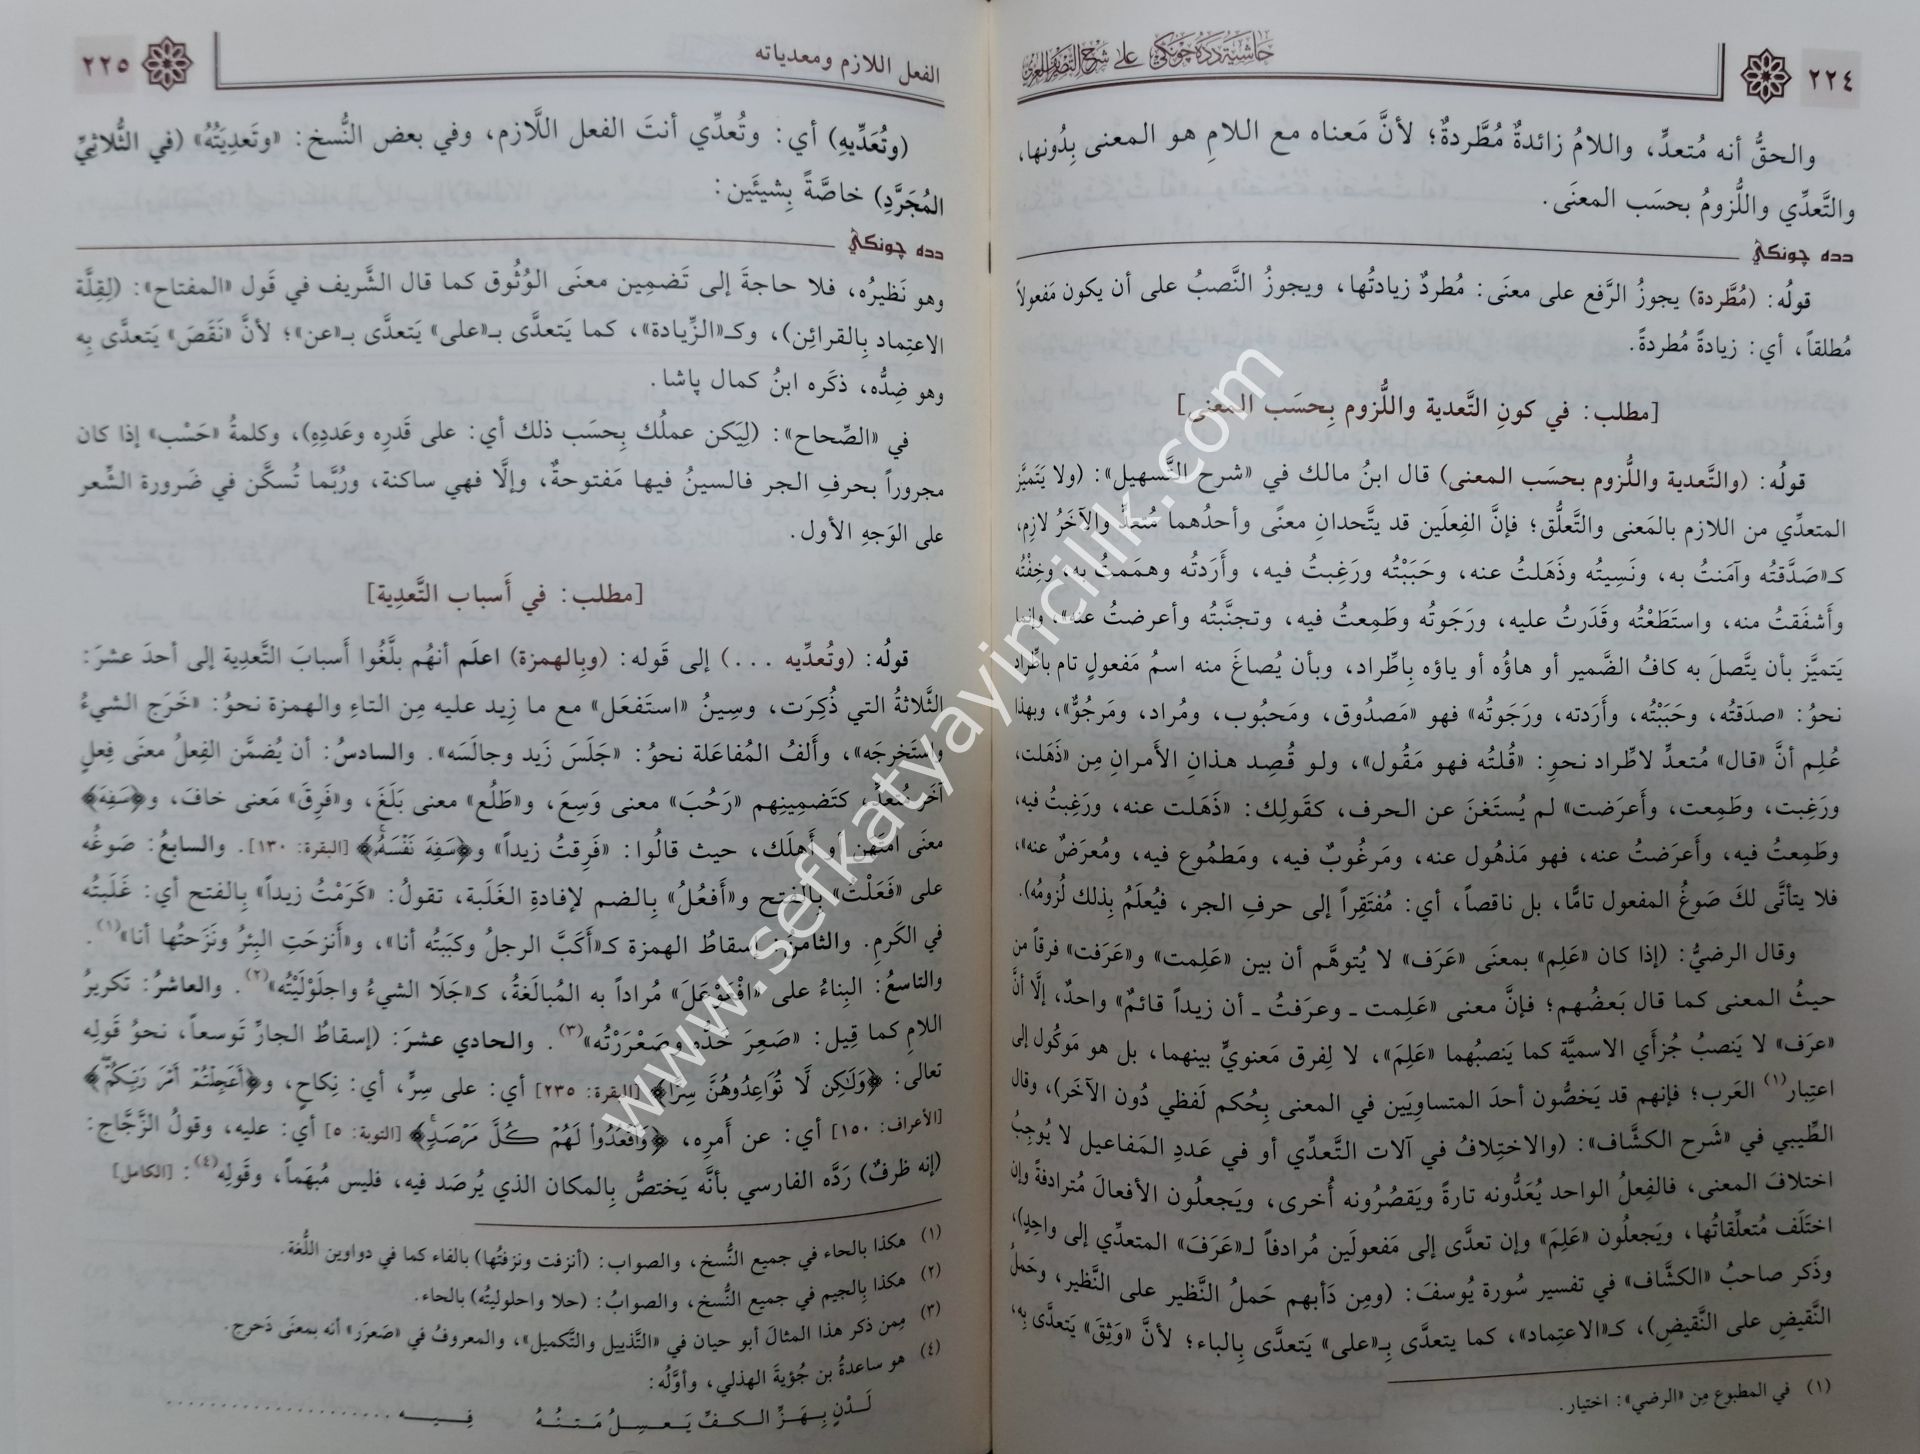 ٢٢٤
حاشية دده جونكي على شرح التصريف العزي
والحقُّ أنه مُتعدٍّ، واللامُ زائدةٌ مُطَّردةٌ؛ لأنَّ مَعناه مع اللامِ هو المعنى بِدُونها،
والتَّعدِّي واللُّزومُ بحسَب المعنَى.
دده چونكي
قولُه: (مُطَّردة) يجوزُ الرَّفع على معنَى: مُطردٌ زيادتُها، ويجوزُ النَّصبُ على أن يكون مَفعولاً
مُطلقاً، أي: زيادةً مُطردةً.
[مطلب: في كونِ التَّعدية واللُّزوم بِحسَب المعنى]
قولُه: (والتَّعدية واللُّزوم بحسَب المعنى) قال ابنُ مالك في «شرح التَّسهيل»: (ولا يَتَميَّز
المتعدِّي من اللازم بالمَعنى والتَّعلُّق؛ فإنَّ الفِعلَين قد يتَّحدانِ معنًى وأحدُهما مُتعدٍّ والآخَرُ لازم،
كـ«صَدَّقتُه وآمَنتُ به، ونَسِيتُه وذَهَلتُ عنه، وحَبَبْتُه ورَغِبتُ فيه، وأَرَدتُه وهمَمتُ به، وخِفْتُه
وأَشفَقتُ منه، واستَطَعْتُه وقَدَرتُ عليه، ورَجَوتُه وطَمِعتُ فيه، وتجنَّبتُه وأعرضتُ عنه»، وإنما
يَتميَّز بأن يتَّصلَ به كافُ الضَّمير أو هاؤُه أو ياؤه بِاطِّراد، وبأن يُصاغَ منه اسمُ مَفعولٍ تام باطِّراد
نحوُ: «صدَقتُه، وحَبَبْتُه، وأَرَدته، ورَجَوتُه» فهو «مَصدُوق، ومَحبُوب، ومُراد، ومَرجُوٌّ»، وبهذا
عُلِم أنَّ «قال» مُتعدٍّ لاطِّراد نحوِ: «قُلتُه فهو مَقُول»، ولو قُصِد هذانِ الأَمرانِ مِن «ذَهَلت،
ورَغِبت، وطَمِعت، وأَعرَضت» لم يُستَغنَ عن الحرف، كقَولِك: «ذَهَلت عنه، ورَغِبتُ فيه،
وطَمِعتُ فيه، وأَعرَضتُ عنه، فهو مَذهُول عنه، ومَرغُوبٌ فيه، ومَطمُوع فيه، ومُعرَضٌ عنه»،
فلا يتأتَّى لكَ صَوغُ المفعول تامًّا، بل ناقصاً، أي: مُفتَقِراً إلى حرفِ الجر، فيُعلَمُ بِذلك لُزومُه).
وقال الرضيُّ: (إذا كان «عَلِم» بمعنَى «عَرَف» لا يُتوهَّم أن بين «عَلِمت» و«عَرَفت» فرقاً من
حيثُ المعنى كما قال بَعضُهم؛ فإنَّ معنى «عَلِمت ـ وعرَفتُ ـ أن زيداً قائمٌ» واحدٌ، إلَّا أنَّ
«عرَف» لا يَنصبُ جُزأَي الاسميَّة كما يَنصبُهما «عَلِمَ»، لا لِفرق مَعنويٍّ بينهما، بل هو مَوكُول إلى
اعتِبار(١) العَرب؛ فإنهم قد يَخصُّون أحدَ المتساوِيَين في المعنى بِحُكم لَفظي دُون الآخَر)، وقال
الطِّيبي في «شَرح الكشَّاف»: (والاختِلافُ في آلات التَّعدِّي أو في عَددِ المَفاعيل لا يُوجِبُ
اختلافَ المعنى، فالفِعلُ الواحد يُعَدُّونه تارةً ويَقصُرُونه أُخرى، ويَجعلُون الأفعالَ مُترادفةً وإن
اختَلَف مُتعلِّقاتُها، ويَجعلُون «عَلِمَ» وإن تعدَّى إلى مَفعولَين مُرادفاً لـ«عَرَفَ» المتعدِّي إلى واحِدٍ)،
وذَكر صاحبُ «الكشَّاف» في تفسير سُورة يُوسفَ: (ومِن دَأبهم حَملُ النَّظير على النَّظير، وحَملُ
النَّقيضِ على النَّقيضِ)، كـ«الاعتِماد»، كما يتعدَّى بـ«على» يَتعدَّى بِالباء؛ لأنَّ «وَثِقَ» يَتعدَّى بِه،
(١) في المطبوع مِن «الرضي»: اختيار.
الفعل اللازم ومعدياته
٢٢٥
(وتُعَدِّيهِ) أي: وتُعدِّي أنتَ الفعل اللَّازم، وفي بعض النُّسخ: «وتَعدِيَتُهُ» (في الثُّلاثيِّ
المُجَرَّدِ) خاصَّةً بِشيئَين:
دده چونكي
وهو نَظيرُه، فلا حاجةَ إلى تَضمِين معنَى الوُثُوق كما قال الشَّريف في قَول «المفتاح»: (لِقِلَّة
الاعتِماد بِالقرائِن)، وكـ«الزِّيادة»، كما يَتعدَّى بـ«على» يَتعدَّى بـ«عن»؛ لأنَّ «نَقَصَ» يَتعدَّى بِه
وهو ضِدُّه، ذكَره ابنُ كمال پاشا.
في «الصِّحاح»: (لِيَكن عملُك بِحسَب ذلك أي: على قَدرِه وعَددِهِ)، وكلمةُ «حَسْب» إذا كان
مجروراً بحرفِ الجر فالسينُ فيها مَفتوحةٌ، وإلَّا فهي ساكنة، ورُبَّما تُسكَّن في ضَرورة الشِّعر
على الوَجهِ الأول.
[مطلب: في أَسباب التَّعدِية]
قولُه: (وتُعدِّيه ...) إلى قَوله: (وبِالهمزة) اعلَم أنهُم بلَّغُوا أَسبابَ التَّعدِية إلى أحدَ عشرَ:
الثَّلاثةُ التي ذُكِرَت، وسِينُ «استَفعَل» مع ما زِيد عليه مِن التاءِ والهمزة نحوُ: «خَرَج الشيءُ
واستَخرجَه»، وأَلفُ المُفاعَلة نحوُ: «جَلَسَ زَيد وجالَسَه». والسادسُ: أن يُضمَّن الفِعلُ معنَى فِعلٍ
آخَر مُتعدٍّ، كتَضمِينِهم «رَحُبَ» معنى وَسِعَ، و«طَلُع» معنى بَلَغَ، و«فَرِقَ» مَعنى خافَ، و﴿سَفِهَ﴾
معنَى امتَهَن أو أَهلَك، حيث قالُوا: «فَرِقتُ زيداً» و﴿سَفِهَ نَفْسَهُۥ﴾ [البقرة: ١٣٠]. والسابعُ: صَوغُه
على «فَعَلْتُ» بِالفتح و«أَفعُلُ» بِالضم لإفادةِ الغَلَبة، تقولُ: «كَرَمْتُ زيداً» بِالفتح أي: غَلَبتُه
في الكَرمِ. والثامنُ: إسقاطُ الهمزة كـ«أَكَبَّ الرجلُ وكبَبتُه أنا»، و«أَنزحَتِ البِئرُ ونَزَحتُها أنا»(١).
والتاسعُ: البِناءُ على «افْعَوْعَلَ» مُراداً به المُبالَغةُ، كـ«جَلَا الشيءُ واجلَوْلَيْتُه»(٢). والعاشرُ: تَكريرُ
اللامِ كما قِيل: «صَعِرَ خدُّه وصَعْرَرْتُه»(٣). والحادي عشرَ: (إسقاطُ الجارِّ تَوسعاً، نحوُ قَولِه
تعالى: ﴿وَلَٰكِن لَّا تُوَاعِدُوهُنَّ سِرًّا﴾ [البقرة: ٢٣٥] أي: على سِرٍّ، أي: نِكاحٍ، و﴿أَعَجِلْتُمْ أَمْرَ رَبِّكُمْ﴾
[الأعراف: ١٥٠] أي: عن أَمرِه، ﴿وَاقْعُدُوا لَهُمْ كُلَّ مَرْصَدٍ﴾ [التوبة: ٥] أي: عليه، وقولُ الزَّجَّاج:
(إنه ظرفٌ) رَدَّه الفارسي بأنَّه يَختصُّ بِالمكان الذي يُرصَد فيه، فليس مُبهَماً، وقَولِه(٤): [الكامل]
(١) هكذا بالحاء في جميع النُّسخ، والصواب: (أنزفت ونزفتُها) بالفاء كما في دواوين اللُّغة.
(٢) هكذا بِالجيم في جميع النُّسخ، والصوابُ: (حلا واحلوليتُه) بالحاء.
(٣) مِمن ذكر هذا المثالَ أبو حيان في «التَّذييل والتَّكميل»، والمعروفُ في «صَعرَر» أنه بمعنَى دَحرج.
(٤) هو ساعدةُ بن جُؤيةَ الهذلي، وأوَّلُه:
لَدْنٍ بِهَزِّ الكفِّ يَعسِلُ مَتنُهُ فِيه ....................
www.sefkatyayincilik.com